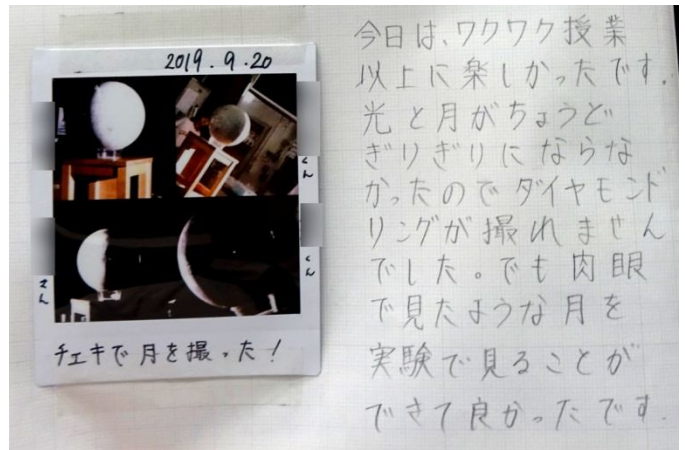 2019.9.20
くん
くん
さん
チェキで月を撮った!
今日は、ワクワク授業
以上に楽しかったです.
光と月がちょうど
ぎりぎりにならな
かったのでダイヤモンド
リングが撮れません
でした。でも肉眼
で見たような月を
実験で見ることが
できて良かったです.